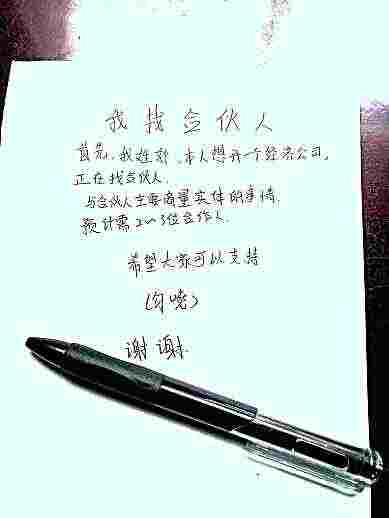 我找合伙人
首先,我姓郑,本人想开一个经济公司,
正在找合伙人.
与合伙人主要商量实体的事情.
预计需2~3位合作人.
希望大家可以支持
谢谢.